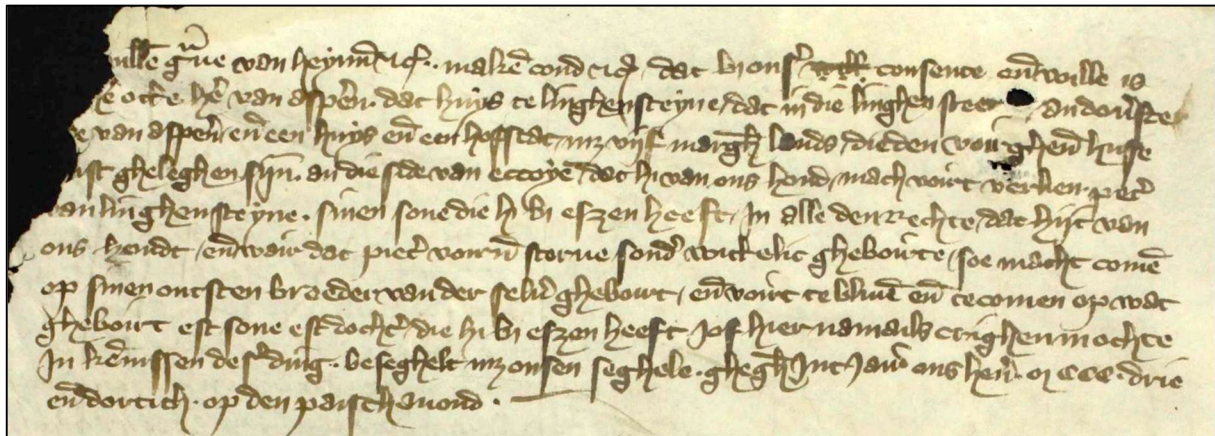 willē g̃ue van heynnēr ⁊cꝭ. makē cond ⁊cꝭ. dat bi onsꝰ consente en̄ wille is
ottē. hē van aspen̄. dat huys te linghensteyne, dat in die linghen steet an douꝰste
van aspen̄ en̄ een huys en̄ een hofstat, mꝫ vijf marghē lands, die den voirghen̄ huse
naist gheleghen sijn. an die side van ettoye, dat hi van ons houd, mach voirt verlien. pet̄
van linghensteyne. sinen sone die hi bi efzen heeft, In alle den rechte, dat hijt van
ons houdt, en̄ wair dat piet̄ voirn̄ storue sondꝰ wittelic gheboirte, soe macht comē
op sinen outsten broeder van der seluꝰ gheboirt, en̄ voirt te bliuē en̄ te comen op wat
gheboirt est sone est dochtꝰ, die hi bi efzen heeft Jof hier namails crighen mochte
In kēnissen desꝰ ding. beseghelt mꝫ onsen seghele. gheghꝰ Int Jair ons hen̄. m ccc. drie
en̄ dortich. op den paischauond.